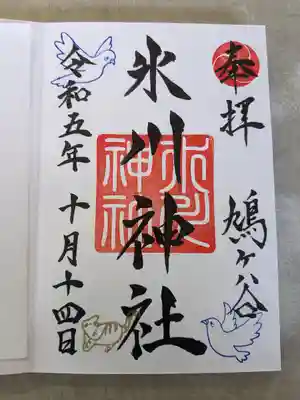 奉拝
鳩ヶ谷
氷川神社
氷川
神社
令和五年 十月十四日